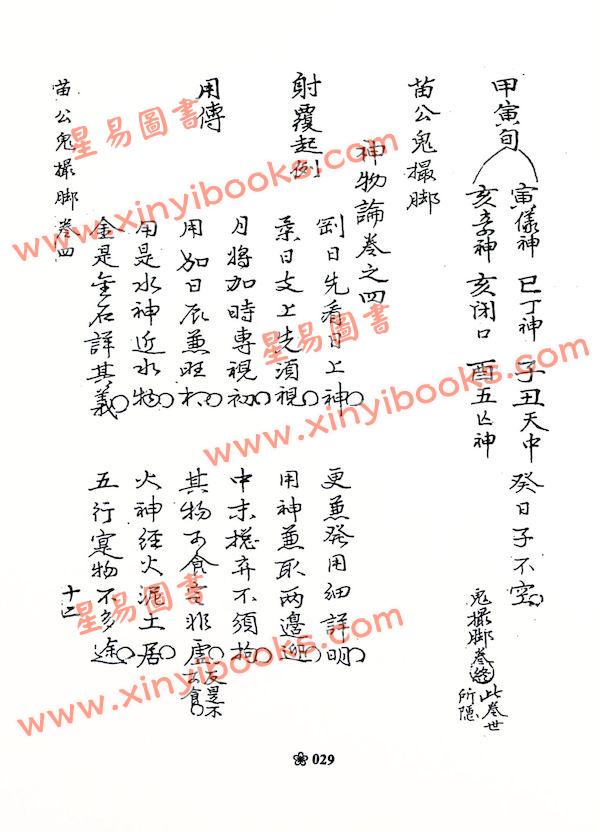 甲寅旬
寅儀神 巳丁神 子丑天中 癸日子不空
亥孛神 亥閉口 酉五亡神
鬼撮脚卷終 此卷世所隱
苗公鬼撮脚
神物論卷之四
射覆起例
剛日先看日上神 更兼發用細詳明
柔日支上先須視 用神兼取两邊迎
月將加時專視初 中末摠弃不須拘
用傳
用加日辰兼旺相 其物可食言非虛 反是不可食
用是水神近水物 火神經火泥土居
金是金石詳其義 五行寔物不多途
苗公鬼撮脚 卷四
十四
029
星易圖書
www.xinyibooks.com
星易圖書
www.xinyibooks.com
星易圖書
www.xinyibooks.com